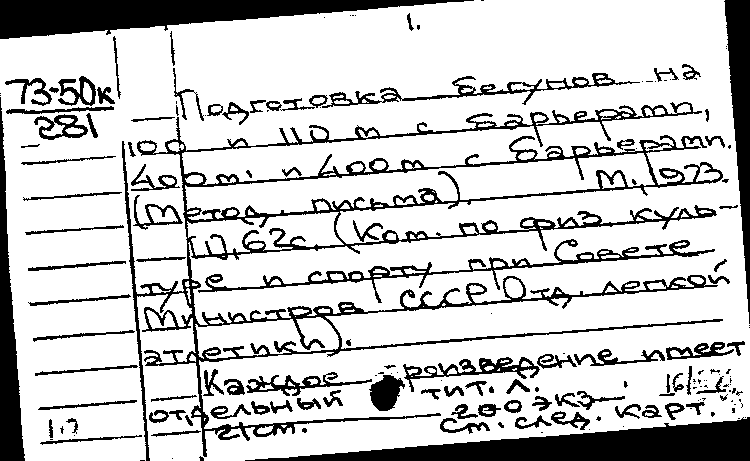 1.
73-50к
281
Подготовка бегунов на
100 и 110 м с барьерами,
400м. и 400м с барьерами.
(Метод. письма). М., 1973.
[1], 62с. (Ком. по физ. куль-
туре и спорту при Совете
Министров СССР Отд. легкой
атлетики).
Каждое произведение имеет
отдельный тит. л.
21см. 200 экз
см. след. карт.